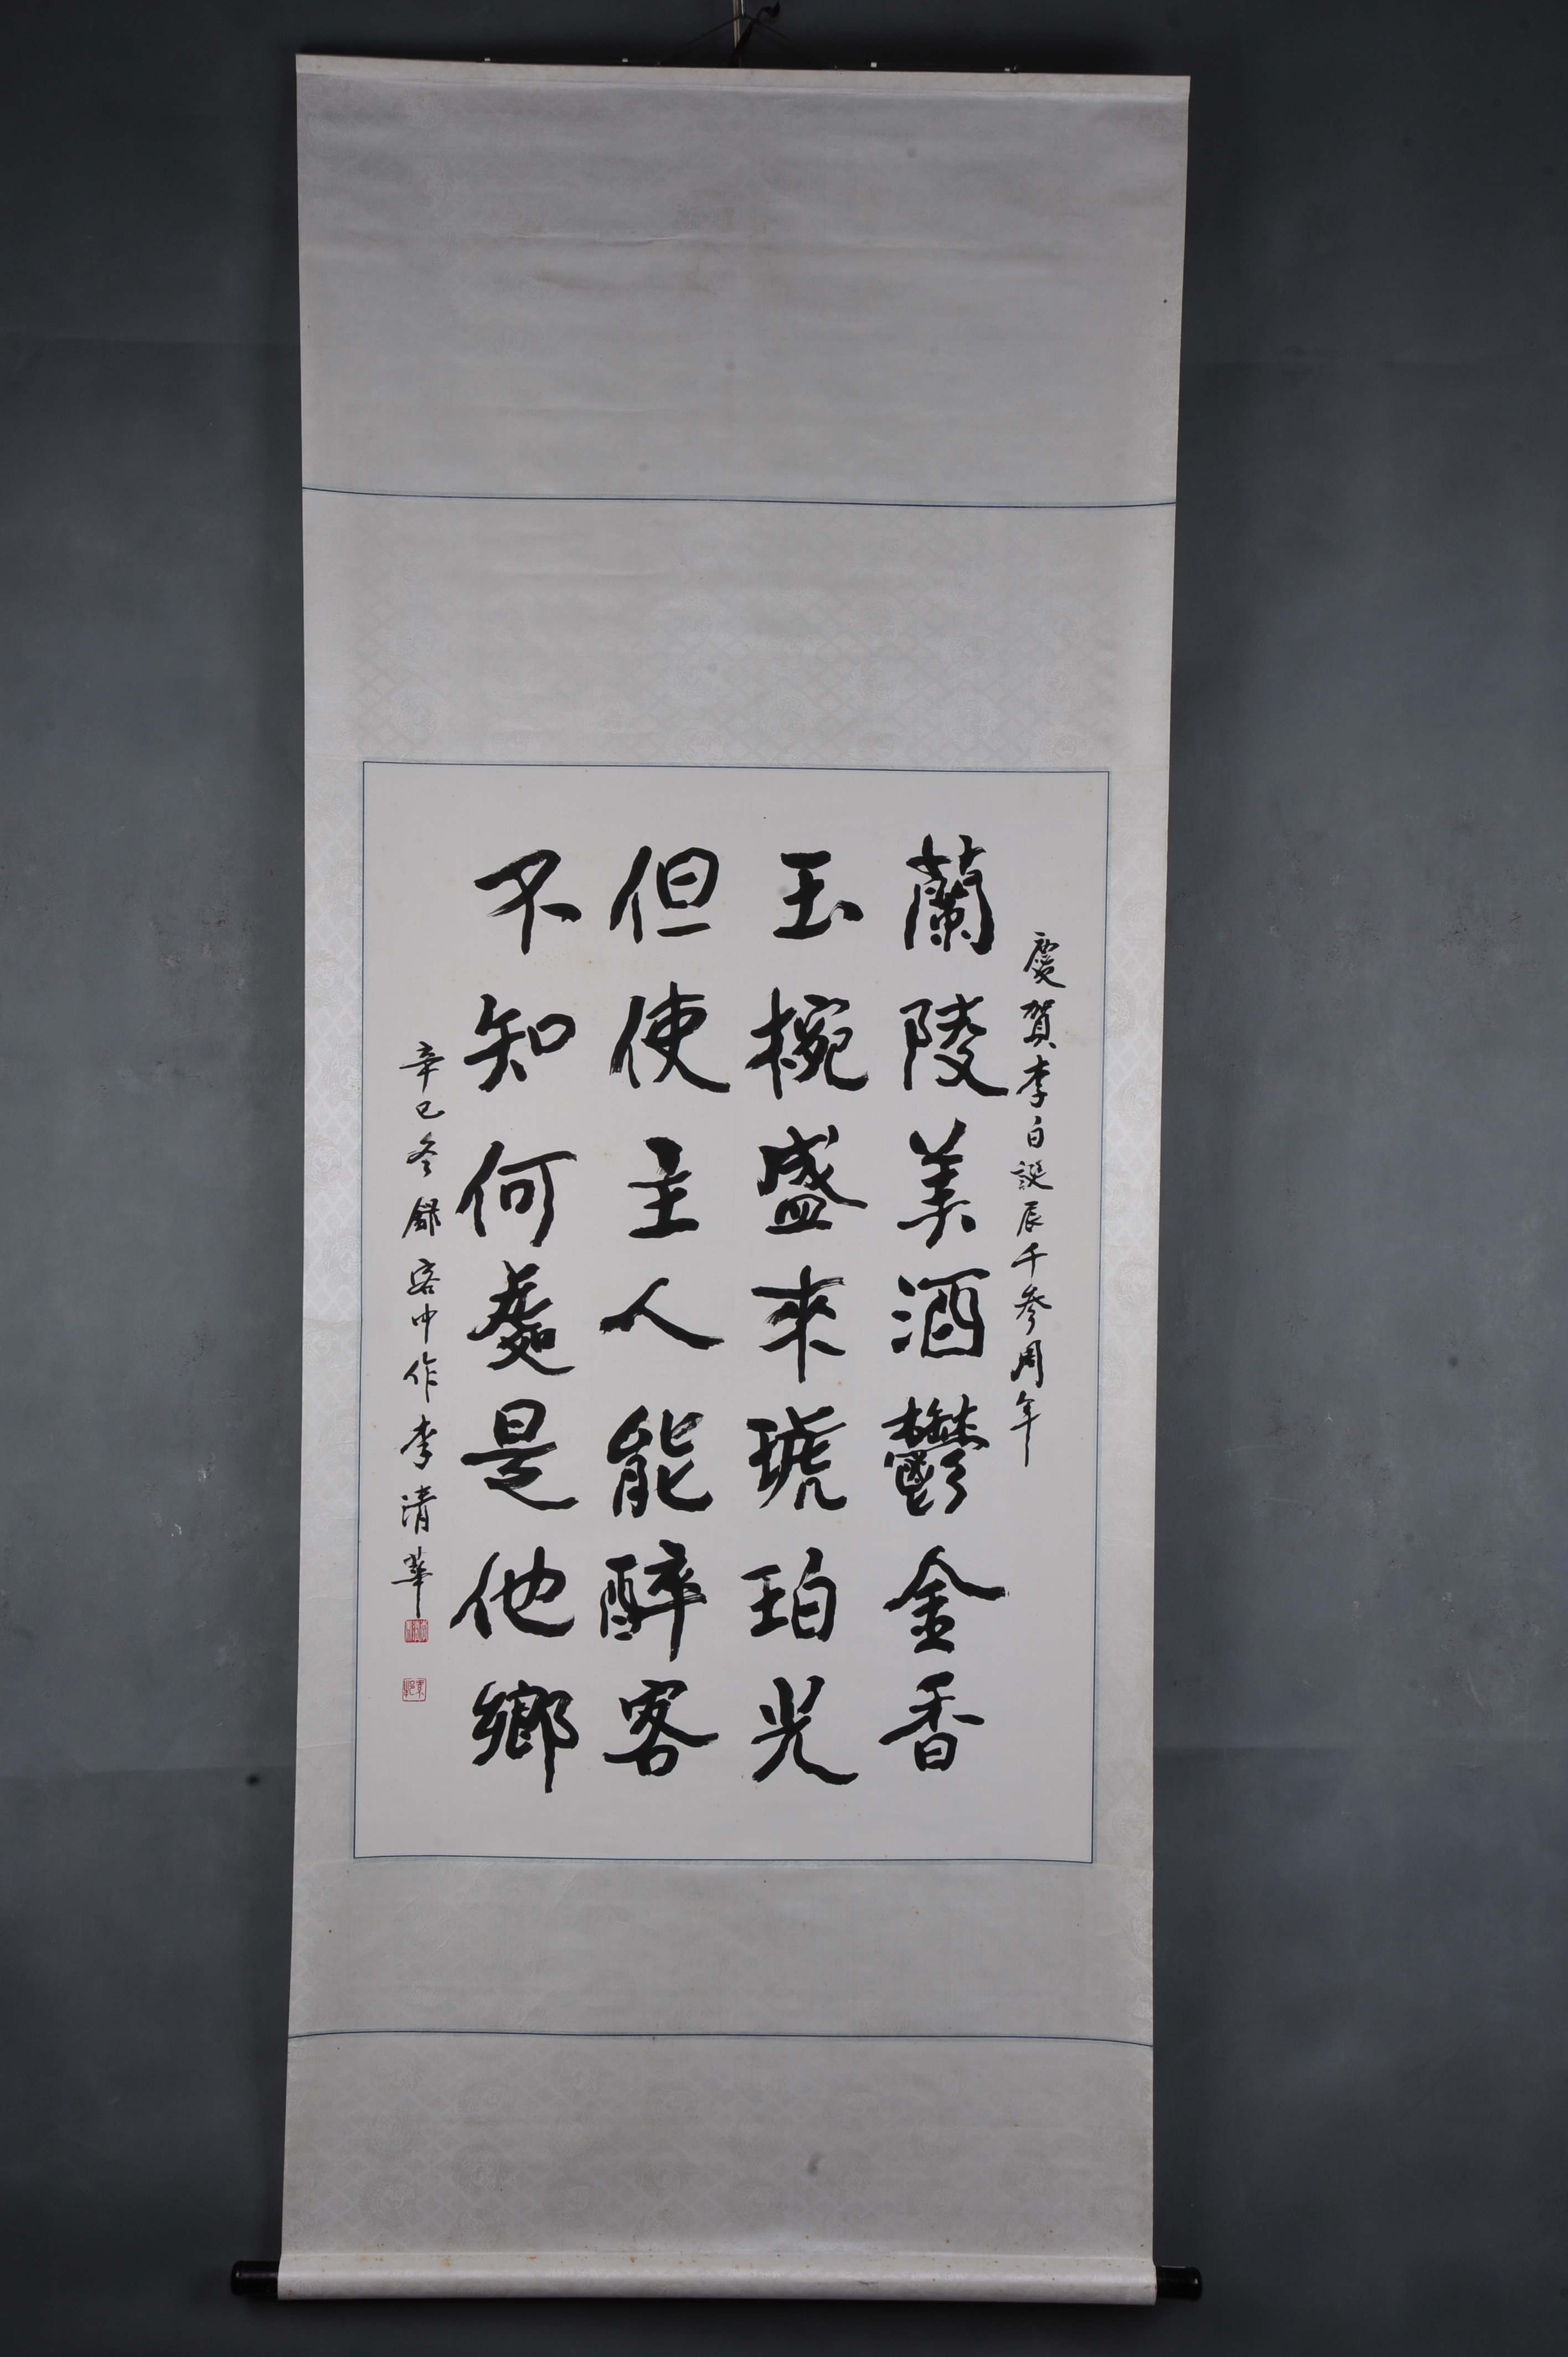 慶賀李白誕辰千參周年
蘭陵美酒鬱金香
玉椀盛來琥珀光
但使主人能醉客
不知何處是他鄉
辛巳冬錄客中作李清華